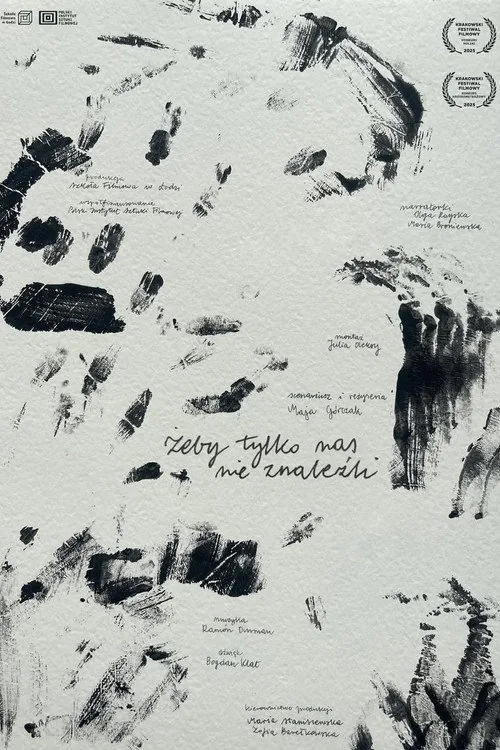 Szkoła
Filmowa
w Łodzi
POLSKI
INSTYTUT
SZTUKI
FILMOWEJ
KRAKOWSKI
FESTIWAL
FILMOWY
KONKURS
POLSKI
2025
KRAKOWSKI
FESTIWAL
FILMOWY
2025
produkcja
Szkoła Filmowa w Łodzi
współfinansowanie
Polski Instytut Sztuki Filmowej
narratorki
Olga Rayska
Maria Broniewska
montaż
Julia
scenariusz i reżyseria
Maja Górczak
żeby tylko nas
nie znaleźli
muzyka
Ramón
dźwięk
Bogdan Klat
kierownictwo produkcji
Maria Staniszewska
Zofia